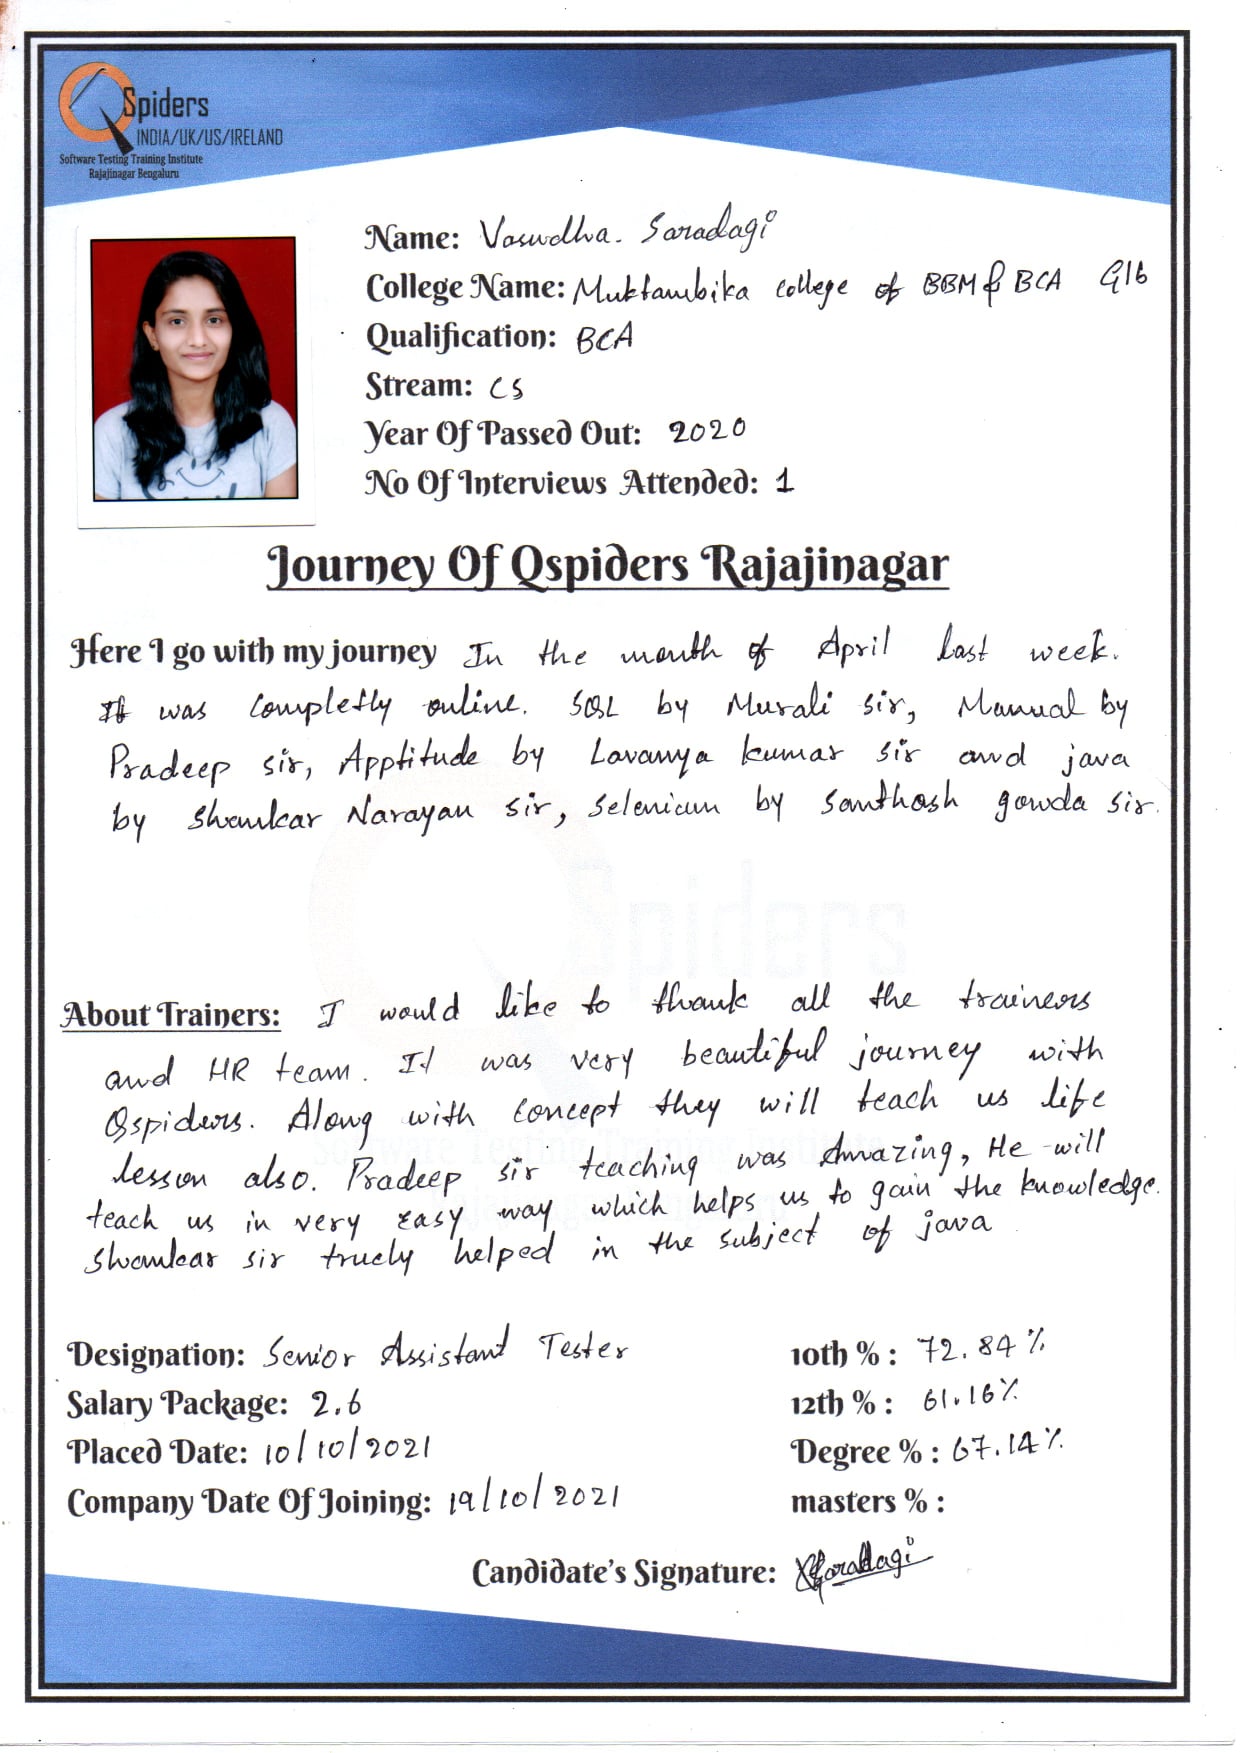 QSpiders
INDIA/UK/US/IRELAND
Software Testing Training Institute
Rajajinagar Bengaluru
Name: Vasudha. Saradagi
College Name: Muktambika college of BBM & BCA Glb
Qualification: BCA
Stream: CS
Year Of Passed Out: 2020
No Of Interviews Attended: 1
Journey Of Qspiders Rajajinagar
Here I go with my journey In the month of April last week.
It was completly online. SQL by Murali sir, Manual by
Pradeep sir, Apptitude by Lavanya kumar sir and java
by Shankar Narayan sir, Selenium by Santhosh gowda sir.
About Trainers: I would like to thank all the traineors
and HR team. It was very beautiful journey with
Qspiders. Along with concept they will teach us life
lesson also. Pradeep sir teaching was Amazing, He will
teach us in very Easy way which helps us to gain the knowledge.
Shankar sir truely helped in the subject of java
Designation: Senior Assistant Tester
10th % : 72.84%
Salary Package: 2.6
12th % : 61.16%
Placed Date: 10/10/2021
Degree % : 67.14%
Company Date Of Joining: 19/10/2021
masters % :
Candidate's Signature: Saradagi
Spiders
Software Testing Training Institute
Rajajinagar Bengaluru